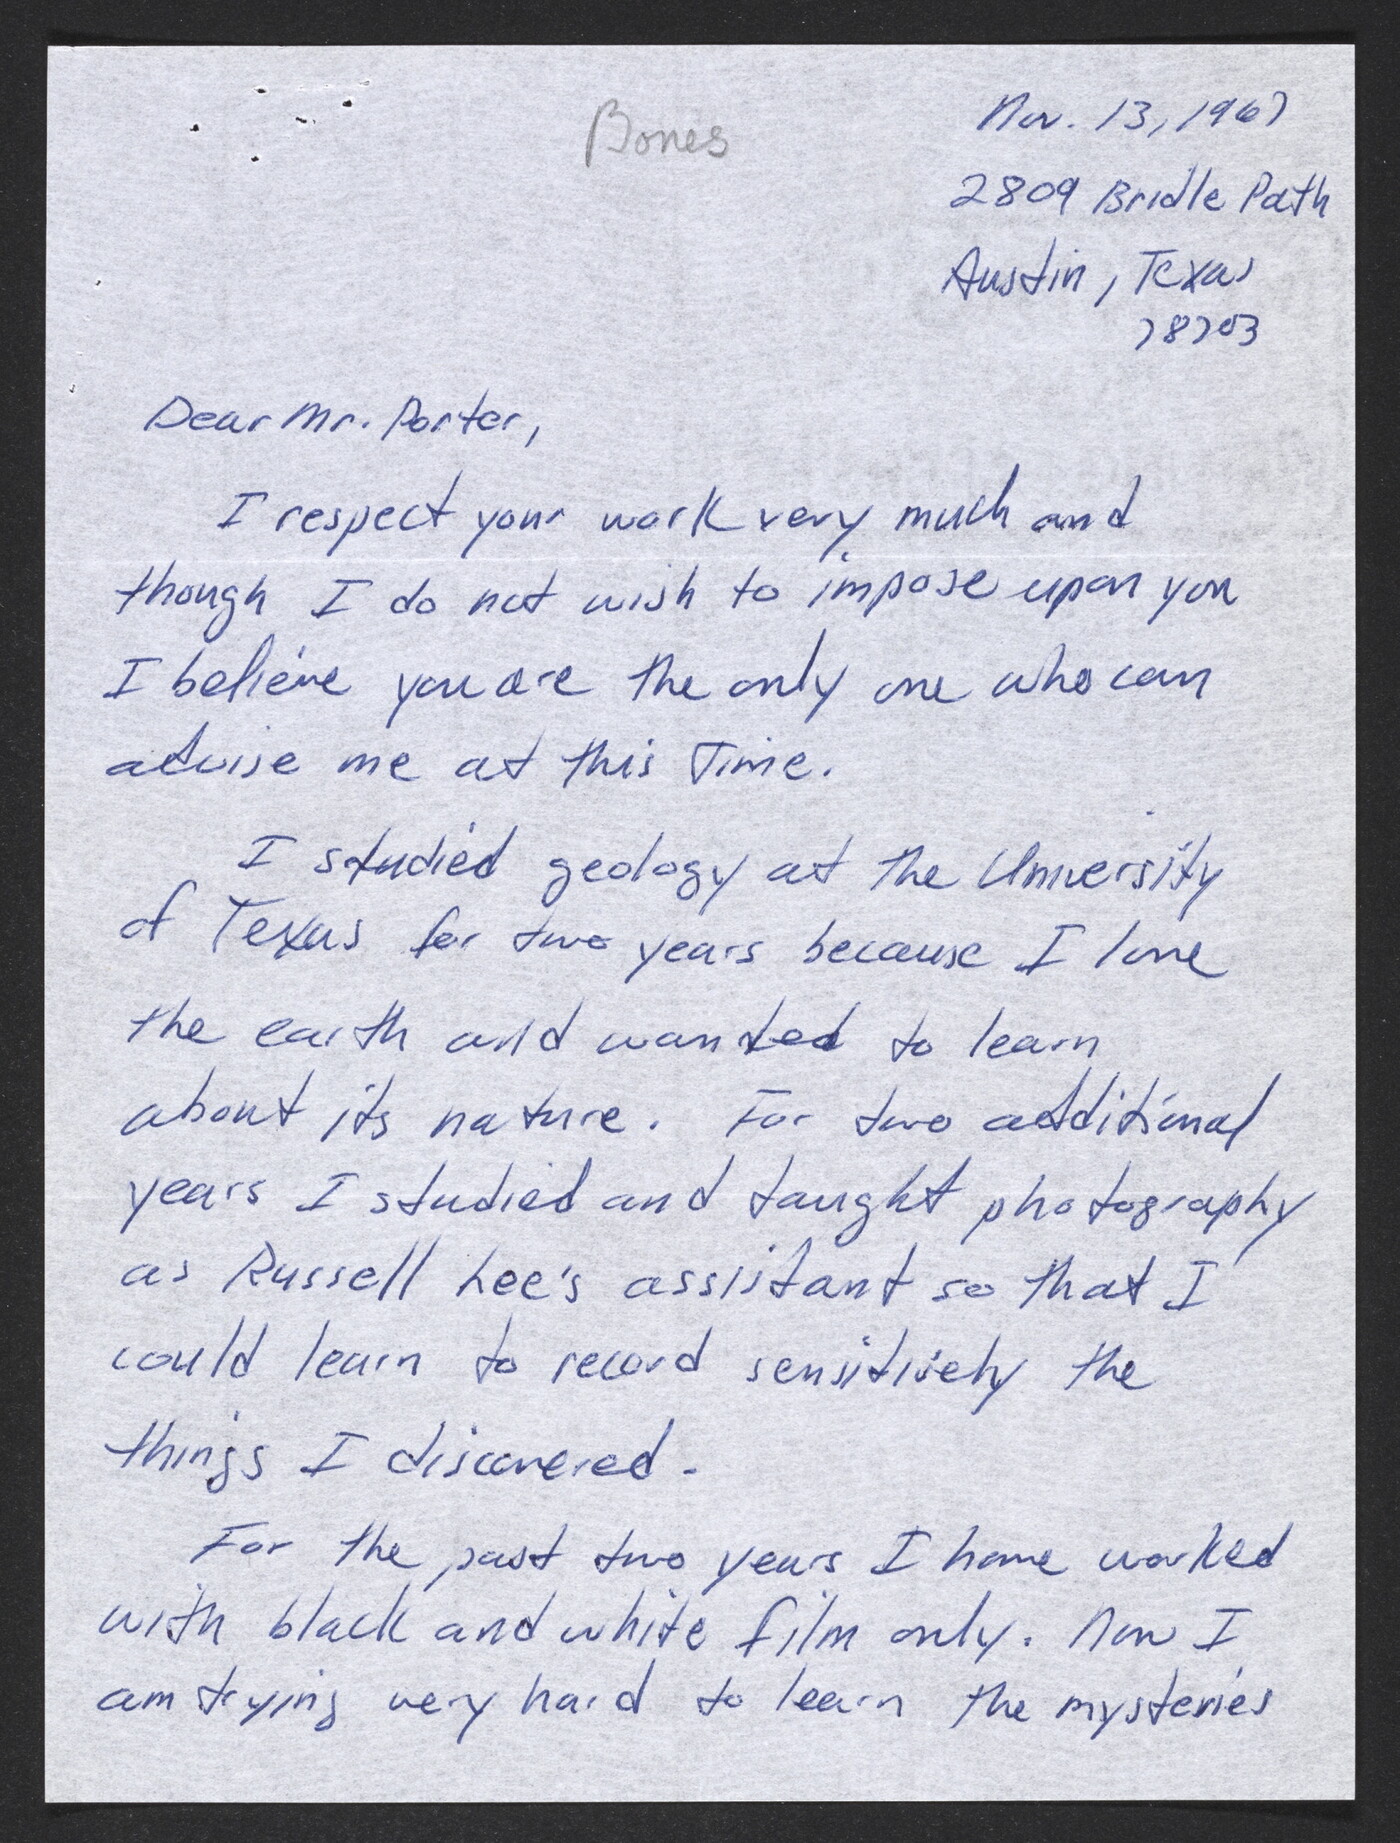 Bones
Nov. 13, 1967
2809 Bridle Path
Austin, Texas
78703
Dear Mr. Porter,
I respect your work very much and
though I do not wish to impose upon you
I believe you are the only one who can
advise me at this time.
I studied geology at the University
of Texas for two years because I love
the earth and wanted to learn
about its nature. For two additional
years I studied and taught photography
as Russell Lee's assistant so that I
could learn to record sensitively the
things I discovered.
For the past two years I have worked
with black and white film only. Now I
am trying very hard to learn the mysteries